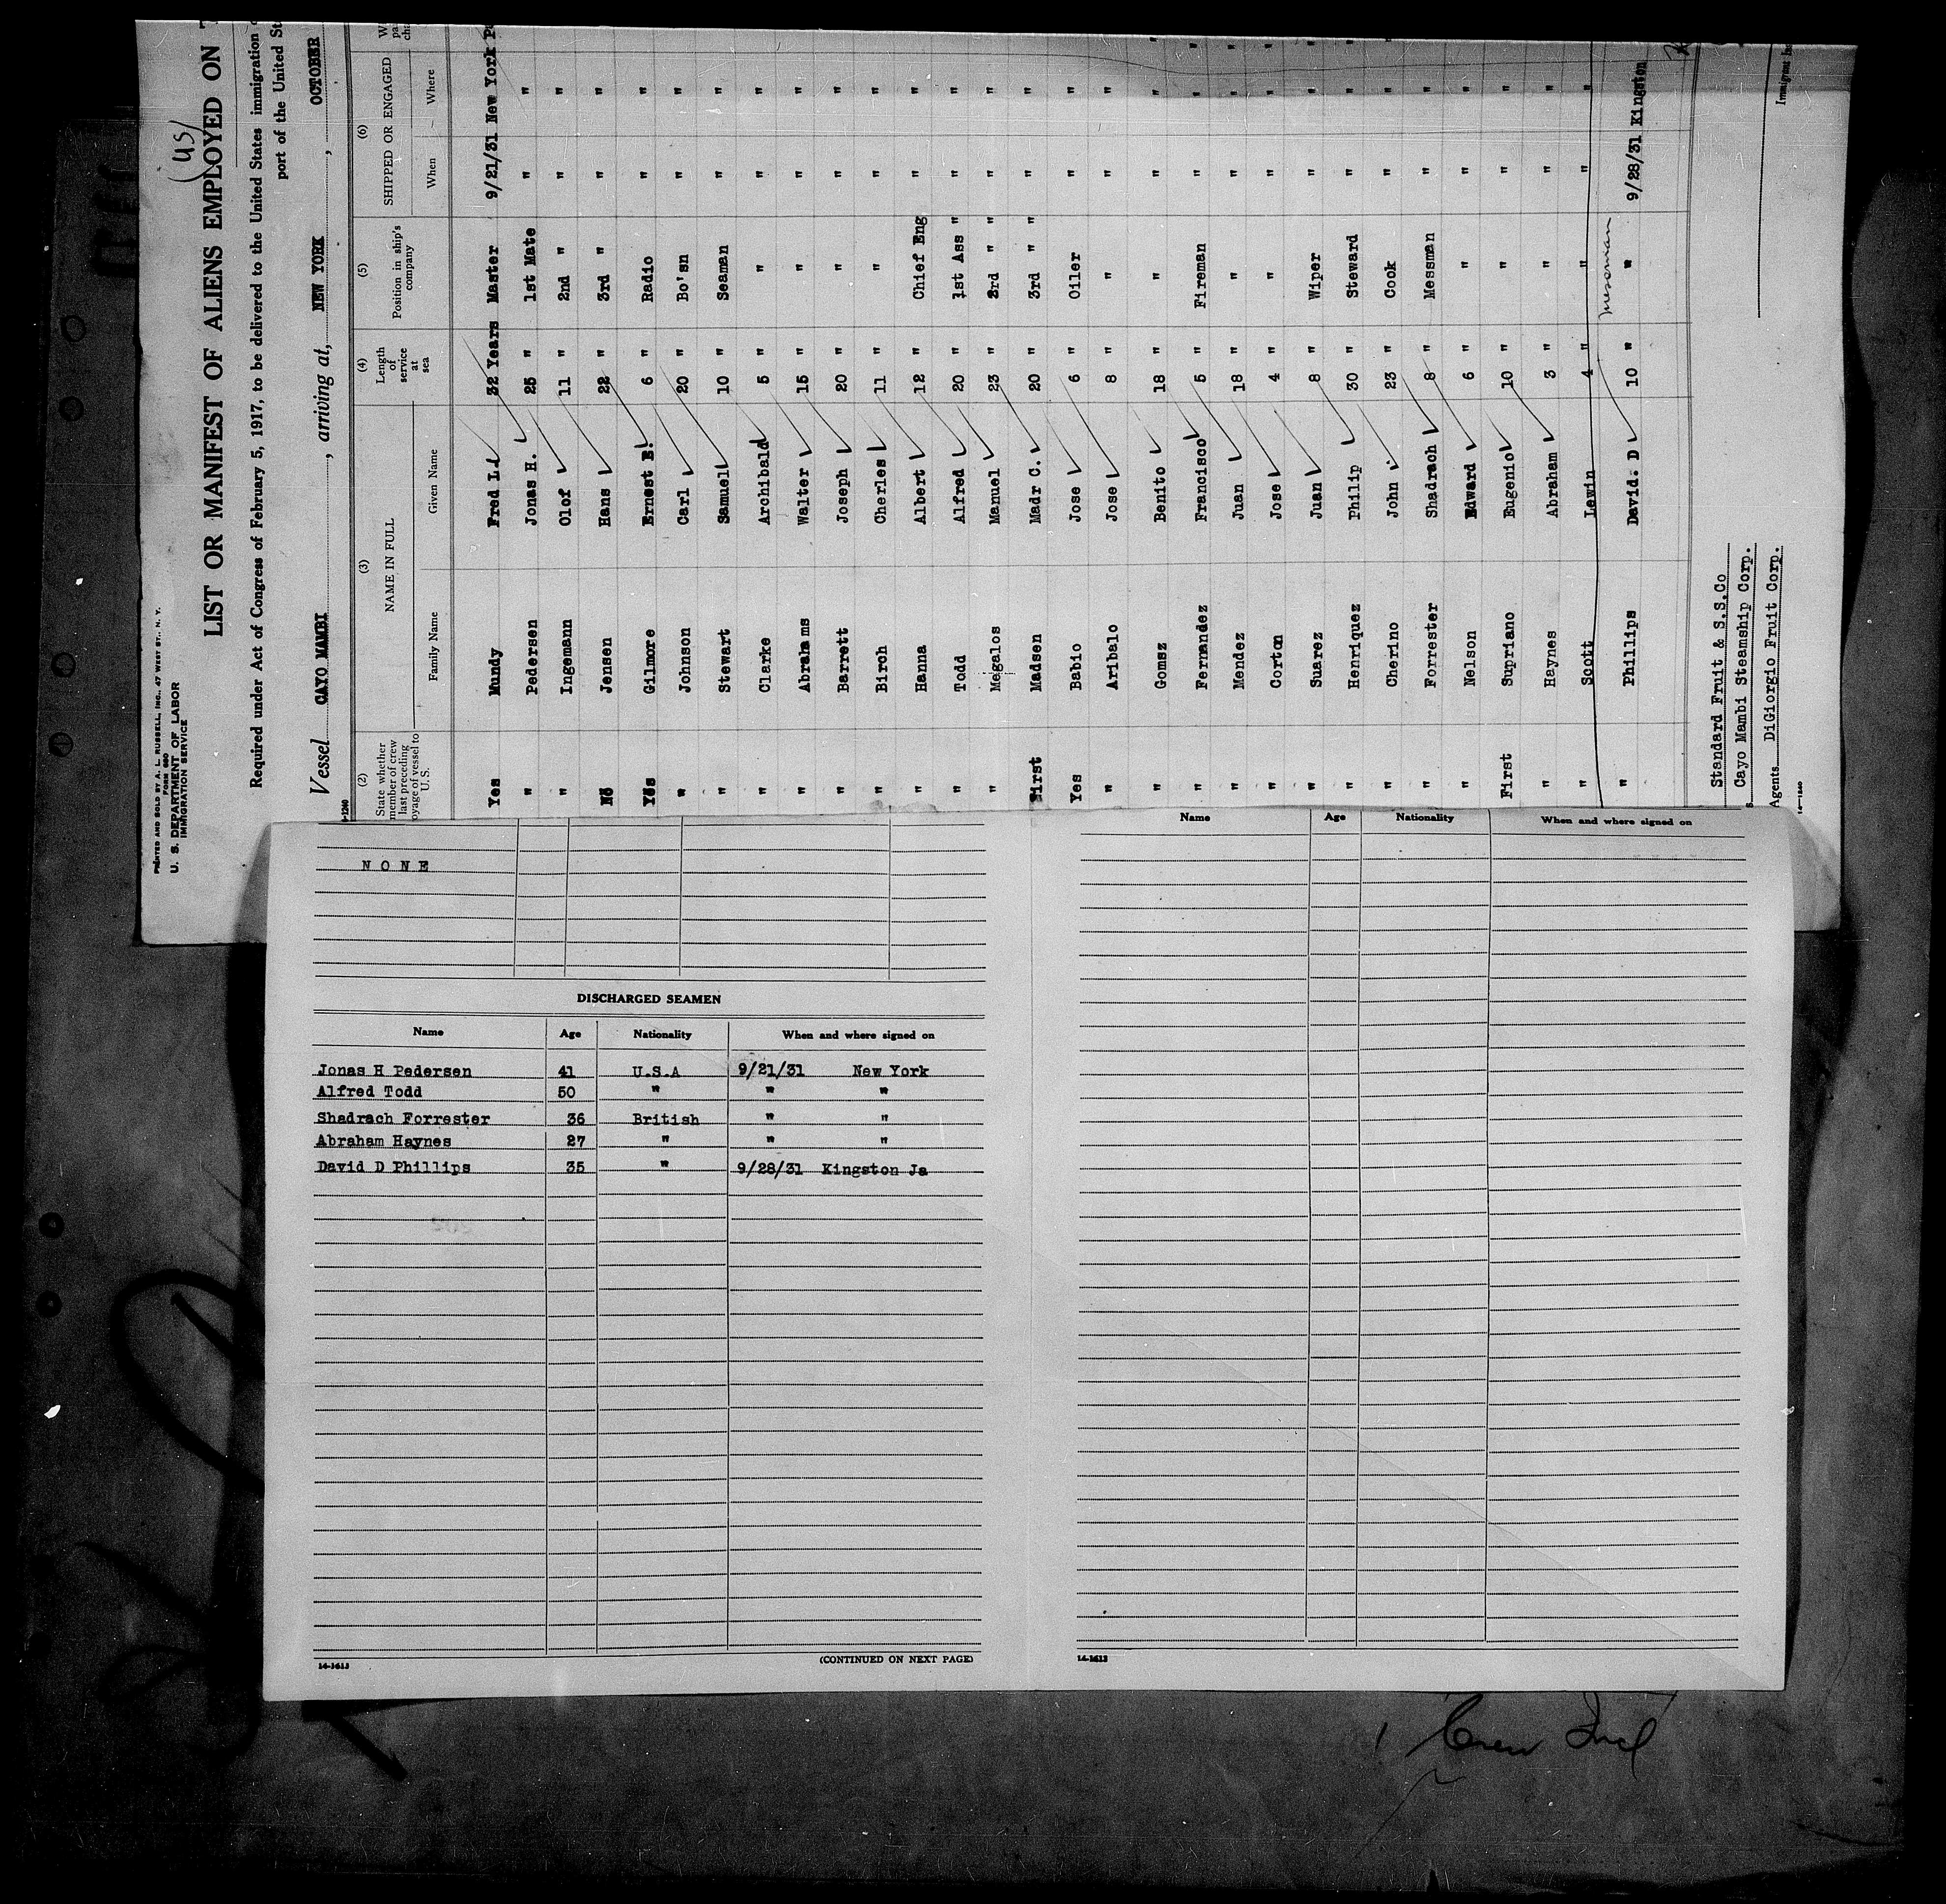 PRINTED AND SOLD BY A. L. RUSSELL, INC., 47 WEST ST., N. Y.
FORM 680
U. S. DEPARTMENT OF LABOR
IMMIGRATION SERVICE
(US)
LIST OR MANIFEST OF ALIENS EMPLOYED ON
Required under Act of Congress of February 5, 1917, to be delivered to the United States immigration
port of the United St
Vessel CAYO MAMBI, arriving at, NEW YORK, OCTOBER
(2) (3) (4) (5) (6)
State whether member of crew last preceding voyage of vessel to U.S. NAME IN FULL Length of service at sea Position in ship's company SHIPPED OR ENGAGED
Family Name Given Name When Where
Yes Mundy Fred L. 32 Years Master 9/21/31 New York
" Pedersen Jonas H. 25 " 1st Mate " "
" Ingemann Olof 11 " 2nd " " "
No Jensen Hans 22 " 3rd " " "
Yes Gilmore Ernest E. 6 " Radio " "
" Johnson Carl 20 " Bo'sn " "
" Stewart Samuel 10 " Seaman " "
" Clarke Archibald 5 " " " "
" Abrahams Walter 15 " " " "
" Barrett Joseph 20 " " " "
" Birch Cherles 11 " " " "
" Hanna Albert 12 " Chief Eng " "
" Todd Alfred 20 " 1st Ass " " "
" Megalos Manuel 23 " 2rd " " " "
First Madsen Madr C. 20 " 3rd " " " "
Yes Babio Jose 6 " Oiler " "
" Aribalo Jose 8 " " " "
" Gomez Benito 18 " " " "
" Fernandez Francisco 5 " Fireman " "
" Mendez Juan 18 " " " "
" Corton Jose 4 " " " "
" Suarez Juan 8 " Wiper " "
" Henriquez Philip 30 " Steward " "
" Cherino John 23 " Cook " "
" Forrester Shadrach 8 " Messman " "
" Nelson Edward 6 " " " "
First Supriano Eugenio 10 " " " "
" Haynes Abraham 3 " " " "
" Scott Lewin 4 " " " "
messman
" Phillips David. D 10 " " 9/28/31 Kingston
Standard Fruit & S.S.Co
Cayo Mambi Steamship Corp.
Agents DiGiorgio Fruit Corp.
Immigrant
NONE
DISCHARGED SEAMEN
Name Age Nationality When and where signed on
Jonas H Pedersen 41 U.S.A 9/21/31 New York
Alfred Todd 50 " " "
Shadrach Forrester 36 British " "
Abraham Haynes 27 " " "
David D Phillips 35 " 9/28/31 Kingston Ja
14-1613 (CONTINUED ON NEXT PAGE)
Name Age Nationality When and where signed on
14-1613
Crew Incl